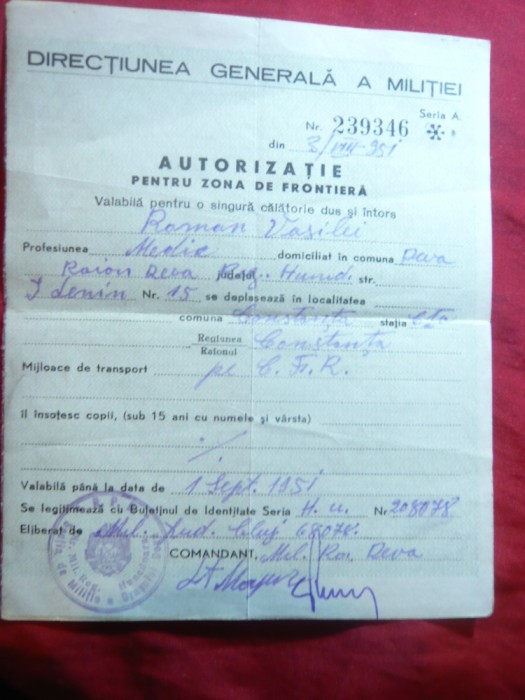 DIRECȚIUNEA GENERALĂ A MILIȚIEI
Seria A.
Nr. 239346
din 3/VIII-951
AUTORIZAȚIE
PENTRU ZONA DE FRONTIERĂ
Valabilă pentru o singură călătorie dus și întors
Roman Vasilei
Profesiunea Medic domiciliat în comuna Deva
Raion Deva județul Reg. Huned. str.
I Lenin Nr. 15 se deplasează în localitatea
comuna Constanța stația C-ța
Regiunea
Raionul
Constanța
Mijloace de transport pe C.F.R.
îl însoțesc copii, (sub 15 ani cu numele și vârsta)
./.
Valabilă până la data de 1 Sept. 1951
Se legitimează cu Buletinul de Identitate Seria H. u. Nr. 208078
Eliberat de Mil. Jud. Cluj 68078.
COMANDANT, Mil. Rai. Deva
Lt Major